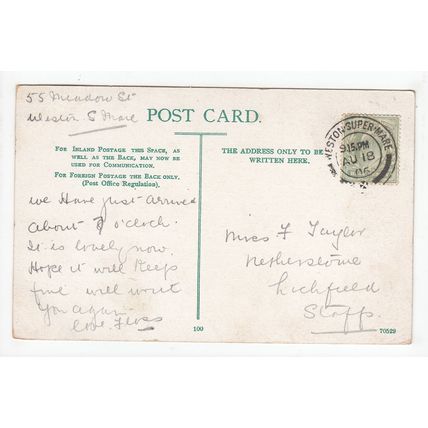 55 Meadow St
Weston S Mare
POST CARD.
FOR INLAND POSTAGE THIS SPACE, AS
WELL AS THE BACK, MAY NOW BE
USED FOR COMMUNICATION.
FOR FOREIGN POSTAGE THE BACK ONLY.
(Post Office Regulation).
THE ADDRESS ONLY TO BE
WRITTEN HERE.
WESTON-SUPER-MARE
9.15 PM
AU 18
06
we Have just arrived
about 7 o'clock.
It is lovely now.
Hope it will keep
fine will write
you again
love Floss
Miss F Taylor
Netherstowe
Lichfield
Staffs.
100
70529